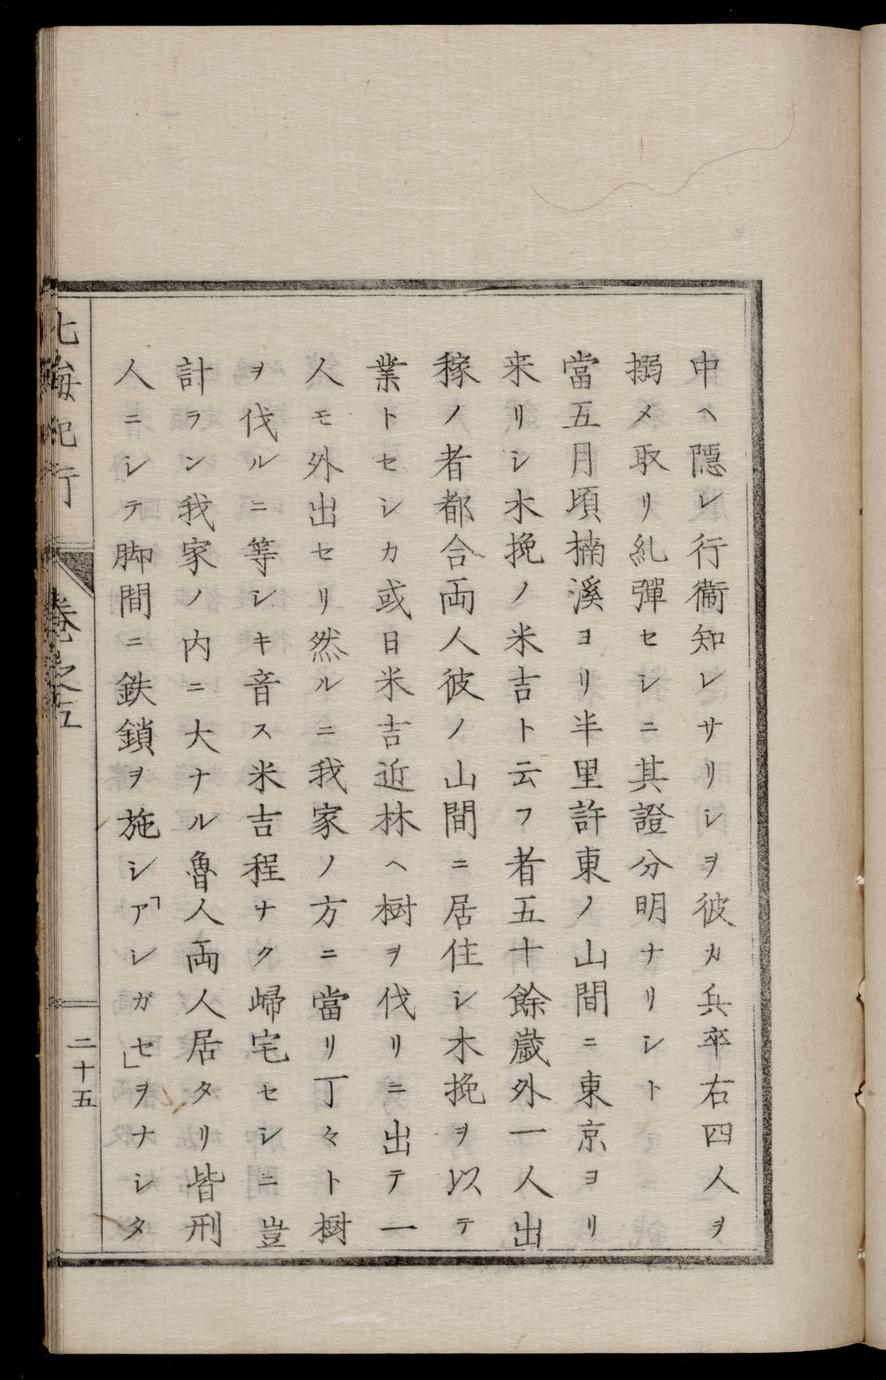 中ヘ隠レ行衞知レサリシヲ彼カ兵卒右四人ヲ
搦メ取リ糺彈セシニ其證分明ナリシト
當五月頃楠溪ヨリ半里許東ノ山間ニ東京ヨリ
来リシ木挽ノ米吉ト云フ者五十餘歳外一人出
稼ノ者都合両人彼ノ山間ニ居住シ木挽ヲ以テ
業トセシカ或日米吉近林ヘ樹ヲ伐リニ出テ一
人モ外出セリ然ルニ我家ノ方ニ當リ丁々ト樹
ヲ伐ルニ等シキ音ス米吉程ナク歸宅セシニ豈
計ラン我家ノ内ニ大ナル魯人両人居タリ皆刑
人ニシテ脚間ニ鉄鎖ヲ施シ「アシガセ」ヲナシタ
北海紀行 巻之五 二十五